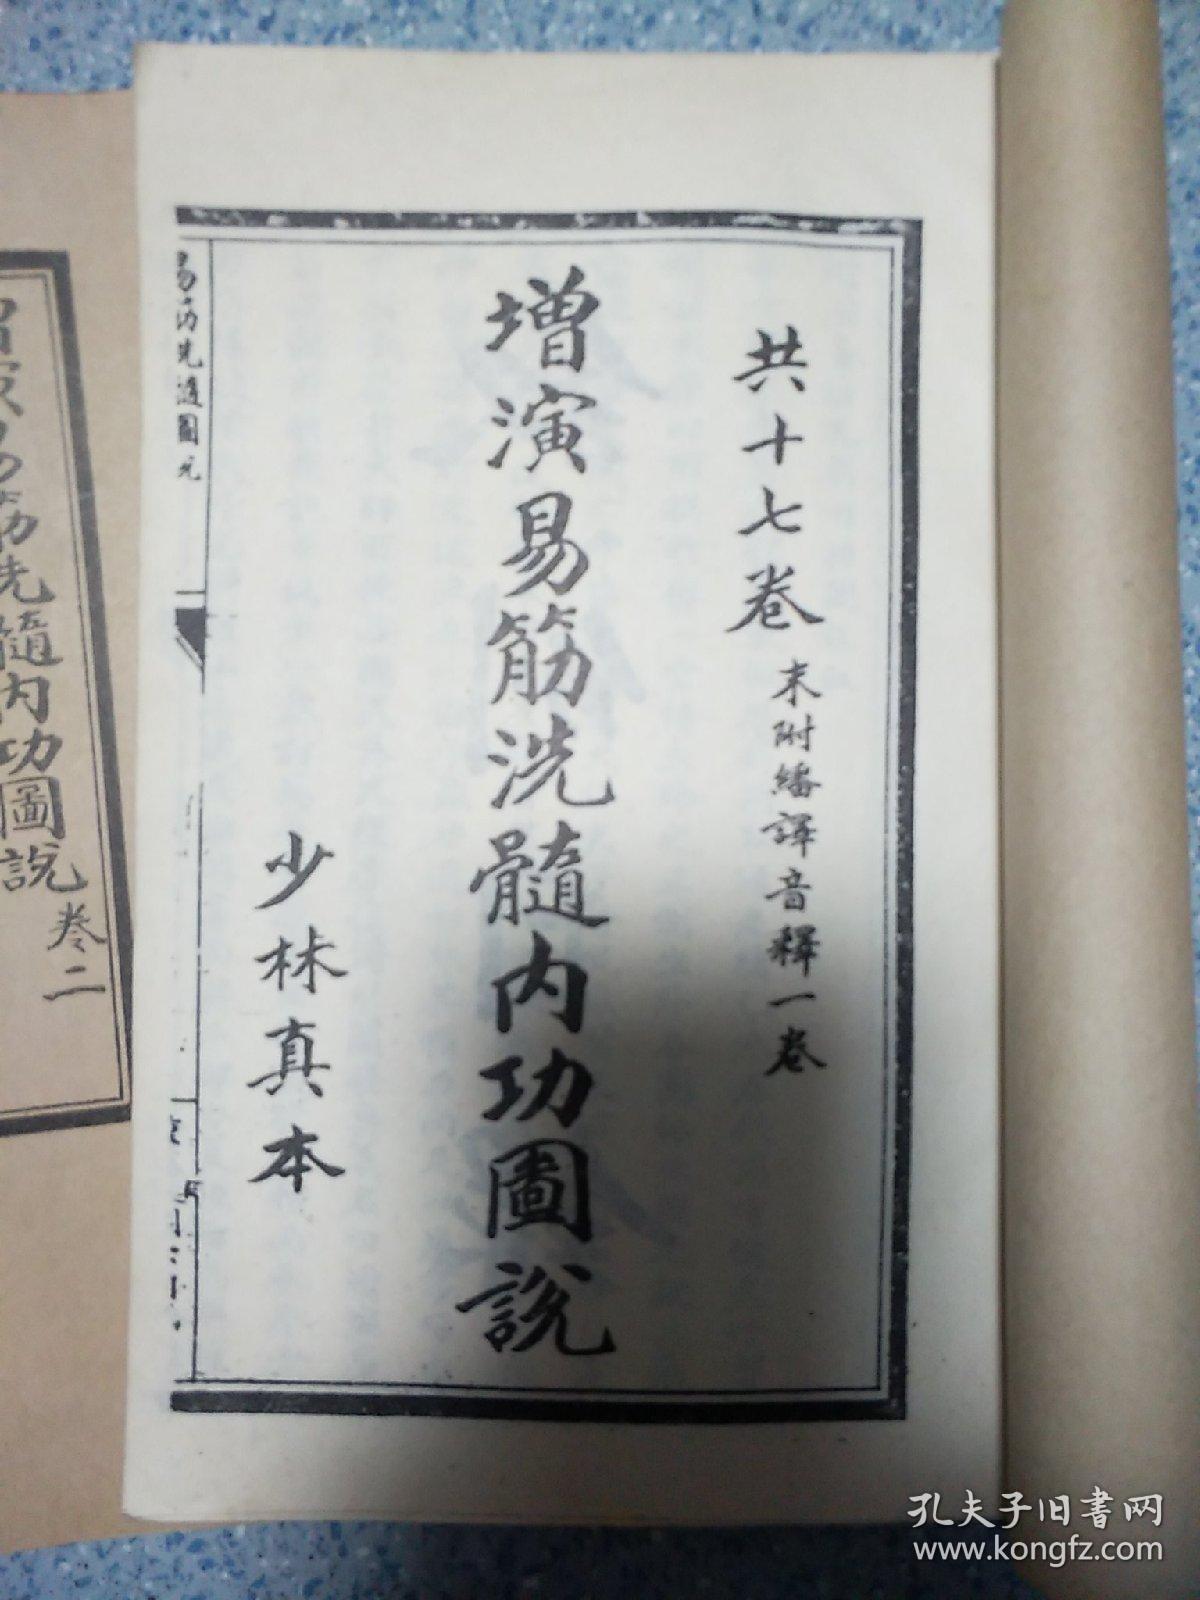 共十七卷 末附繙譯音釋一卷
增演易筋洗髓內功圖說
少林真本
易筋洗髓圖元
筋洗髓內功圖說 卷二
孔夫子旧书网
www.kongfz.com